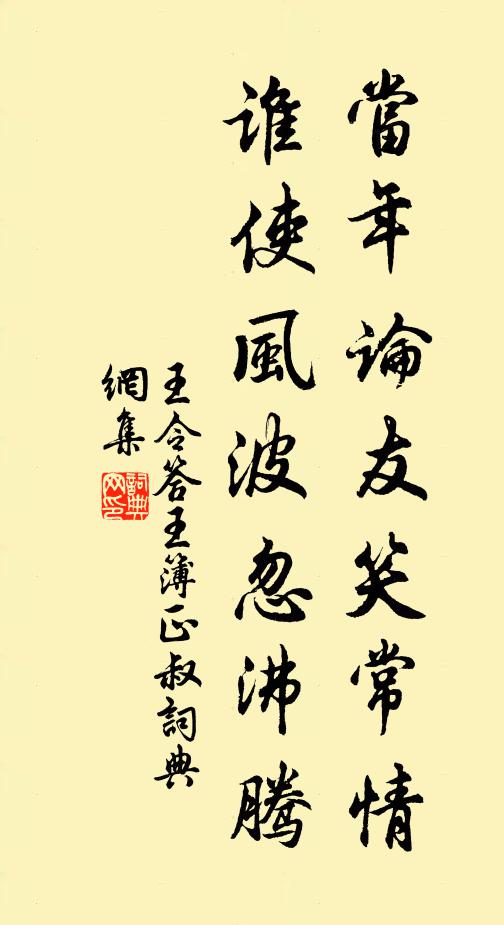 當年論友笑常情
誰使風波忽沸騰
王令答王簿正叔詞典
網集
詞典網印